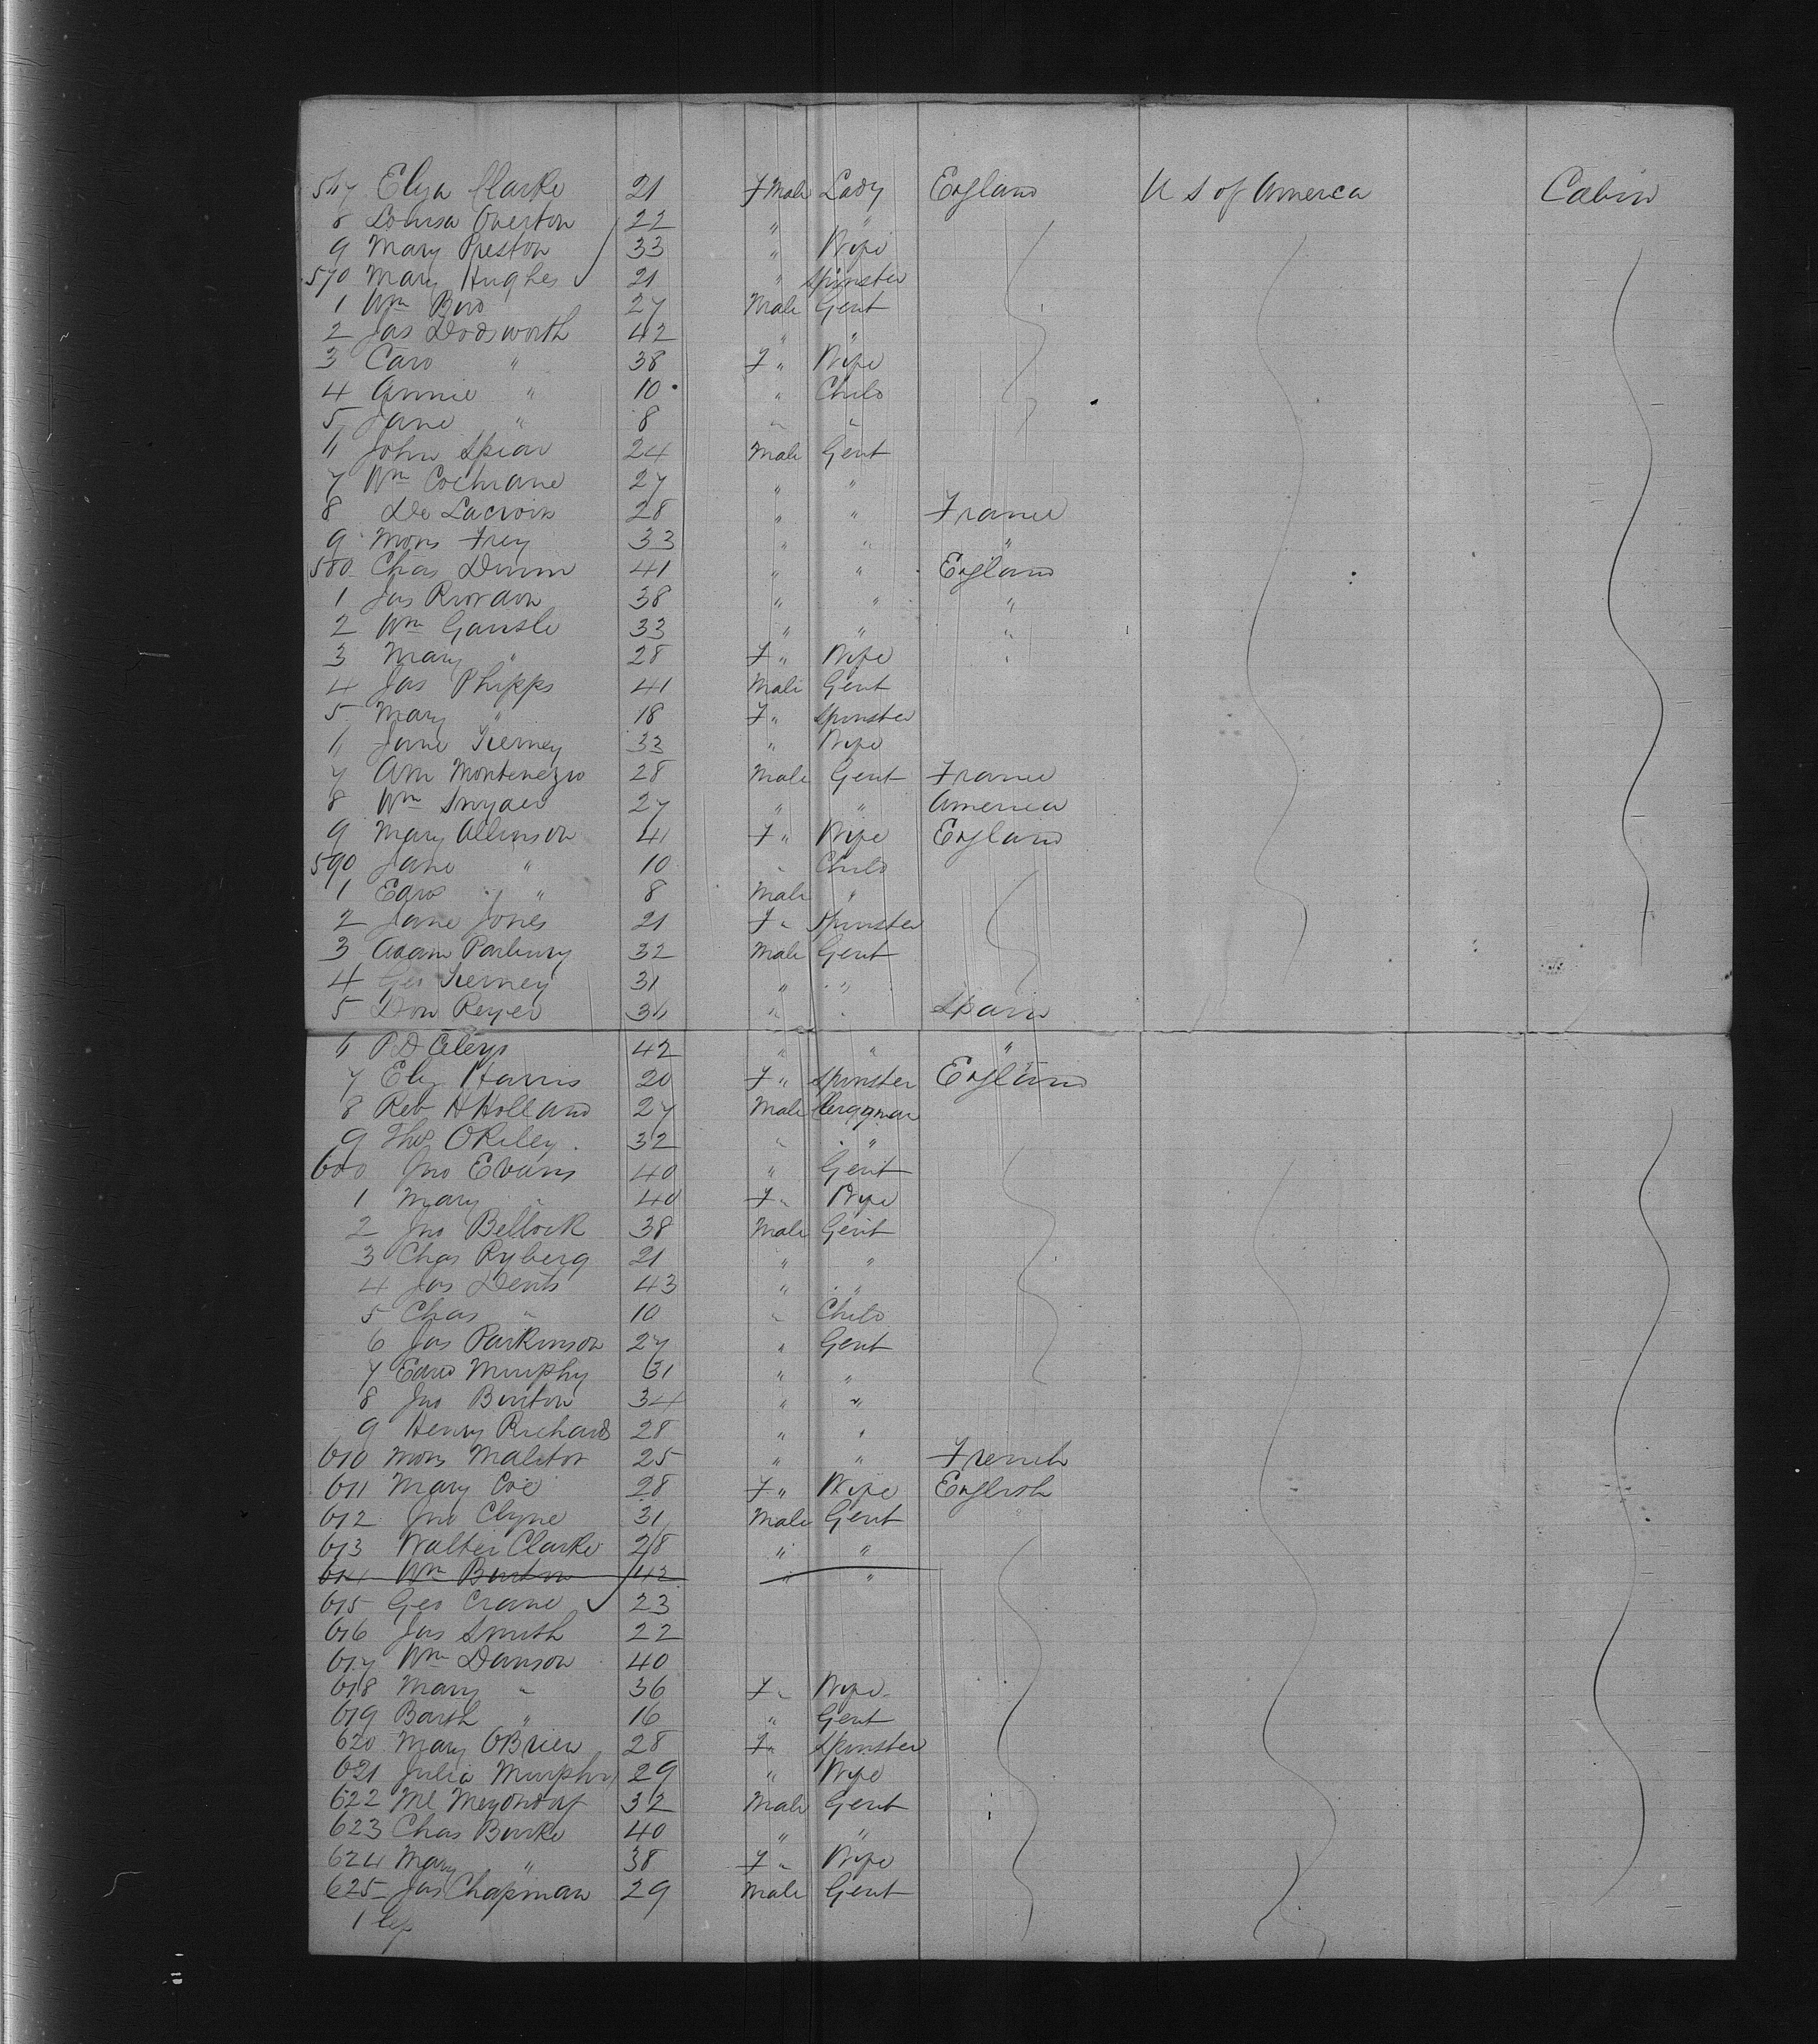 567 Eliza Clarke 21 F Male Lady England U S of America Cabin
8 Louisa Overton 22 " "
9 Mary Preston 33 " Wife
570 Mary Hughes 21 " Spinster
1 Wm Bird 27 Male Gent
2 Jas Dodsworth 42 " "
3 Caro " 38 F " Wife
4 Annie " 10 " Child
5 Jane " 8 " "
6 John Spear 24 Male Gent
7 Wm Cochrane 27 " "
8 De Lacroix 28 " " France
9 Mons Frey 33 " " "
580 Chas Dunn 41 " " England
1 Jas Riordon 38 " " "
2 Wm 33 " " "
3 Mary " 28 F " Wife "
4 Jas Phipps 41 Male Gent
5 Mary " 18 F " Spinster
6 Jane Tierney 33 " Wife
7 Am Montenegro 28 Male Gent France
8 Wm Snyder 27 " " America
9 Mary Allinson 41 F " Wife England
590 Jane " 10 " Child
1 Edwd " 8 Male "
2 Jane Jones 21 F " Spinster
3 Adam Parbury 32 Male Gent
4 Geo Tierney 31 " "
5 Don Reyes 36 " " Spain
6 P D 42 " " "
7 Eliz Harris 20 F " Spinster England
8 Rev H Holland 27 Male Clergyman
9 Thos ORiley 32 " "
600 Jno Evans 40 " Gent
1 Mary " 40 F " Wife
2 Jno Bellock 38 Male Gent
3 Chas Ryberg 21 " "
4 Jas Dents 43 " "
5 Chas " 10 " Child
6 Jas Parkinson 27 " Gent
7 Edwd Murphy 31 " "
8 Jno Burton 34 " "
9 Henry Richards 28 " "
610 Mons Malitor 25 " " French
611 Mary Coe 28 F " Wife English
612 Jno Clyne 31 Male Gent
613 Walter Clarke 28 " "
614 Wm Burton 42 " "
615 Geo Crane 23
616 Jas Smith 22
617 Wm Dawson 40
618 Mary " 36 F " Wife
619 Barth " 16 " Gent
620 Mary OBrien 28 F " Spinster
621 Julia Murphy 29 " Wife
622 Ml Meyondorf 32 Male Gent
623 Chas Burke 40 " "
624 Mary " 38 F " Wife
625 Jas Chapman 29 Male Gent
1